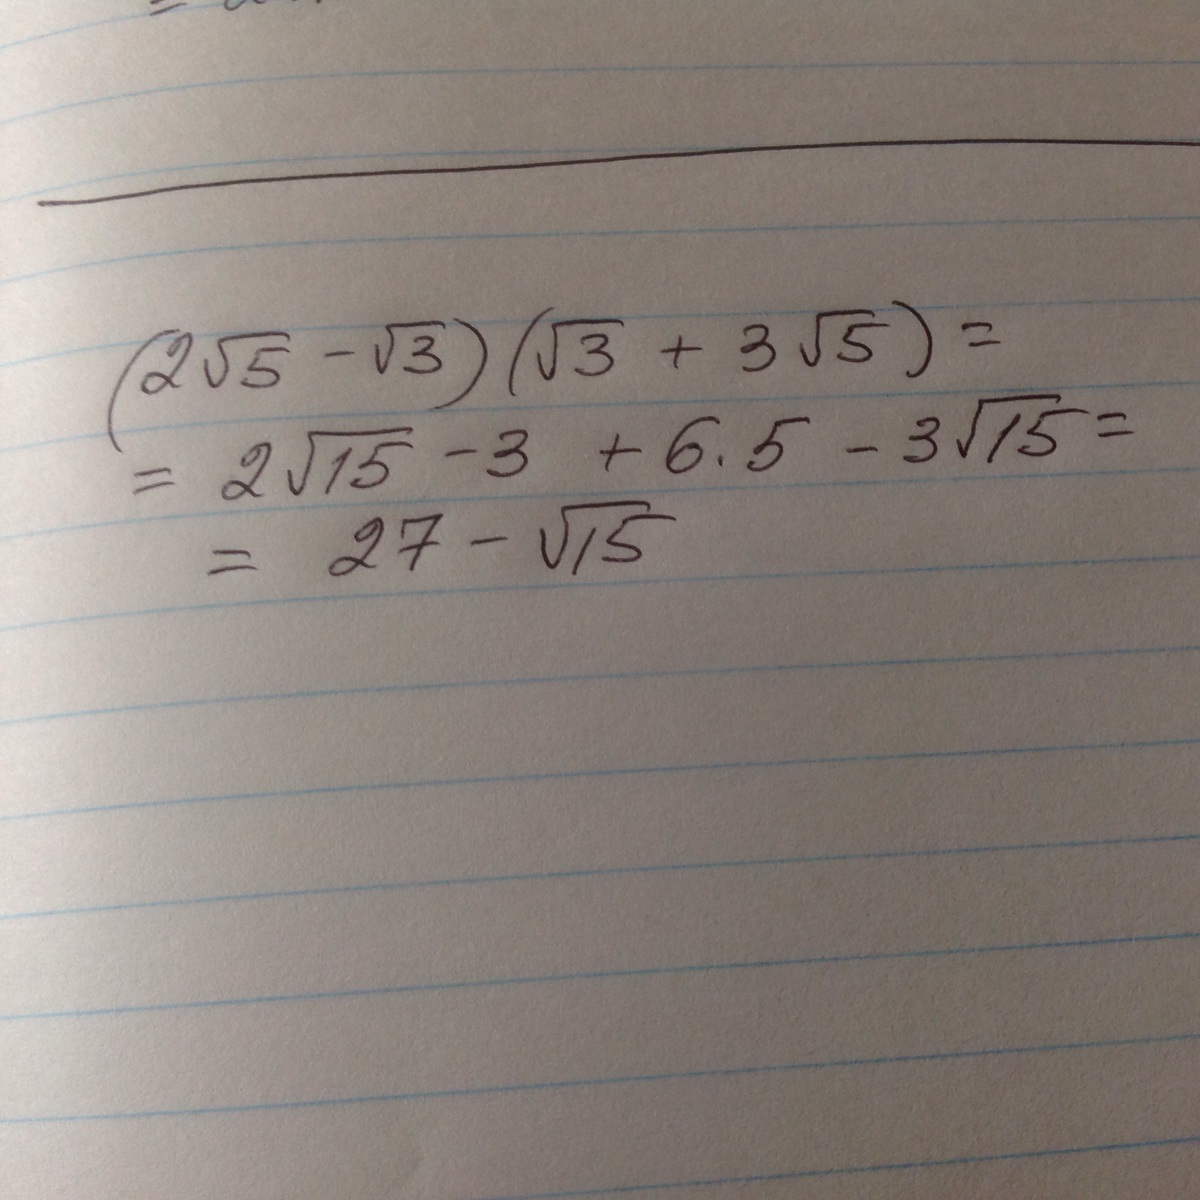 (2√5 - √3)(√3 + 3√5) =
= 2√15 - 3 + 6.5 - 3√15 =
= 27 - √15